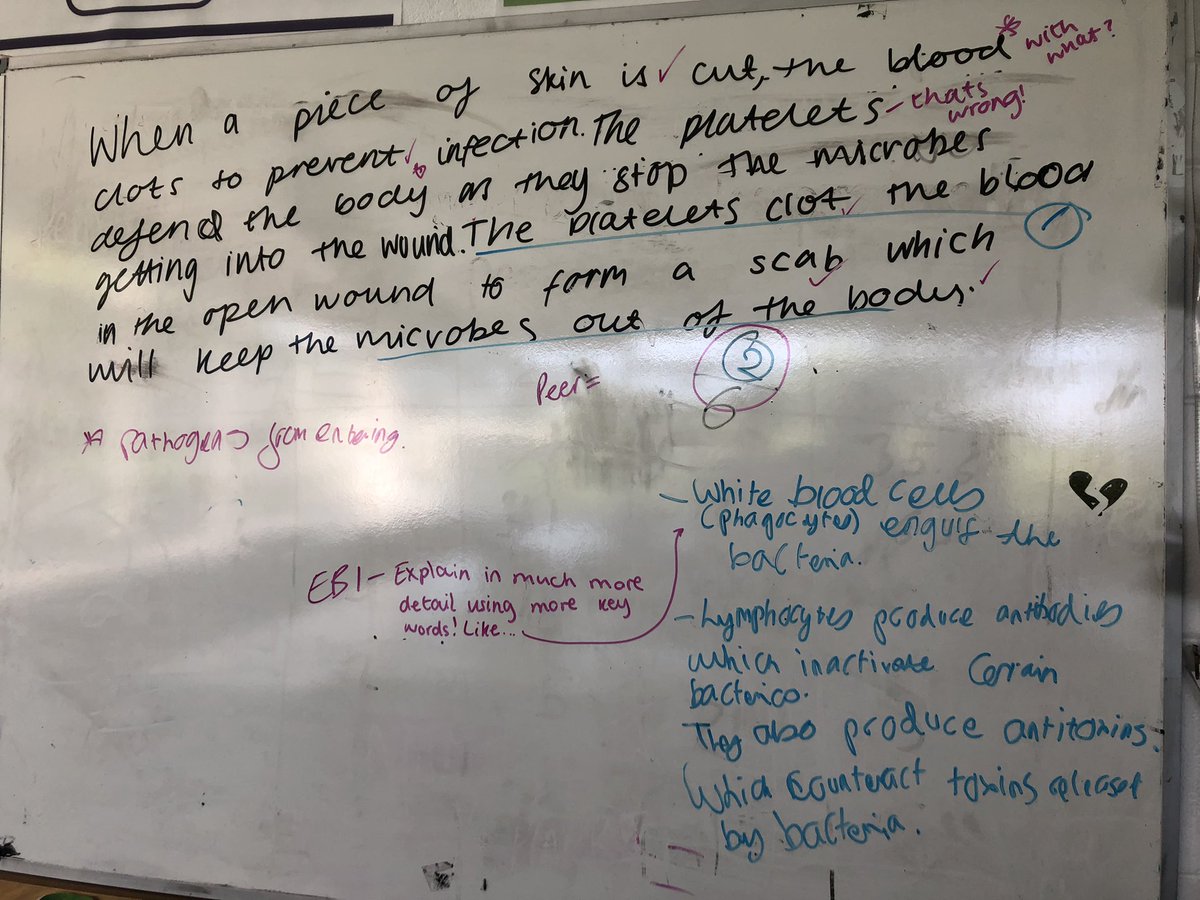 When a piece of skin is ✓ cut, the blood * with what?
clots to prevent ✓ infection. The platelets - thats wrong!
defend the body as they stop the microbes
getting into the wound. The platelets clot ✓ the blood ①
in the open wound to form a scab ✓ which
will keep the microbes out of the body. ✓
②
Peer =
* pathogens from entering.
- White blood cells
(phagocytes) engulf the
bacteria.
EBI - Explain in much more
detail using more key
words! Like...
- Lymphocytes produce antibodies
which inactivate certain
bacteria.
They also produce antitoxins.
Which counteract toxins released
by bacteria.